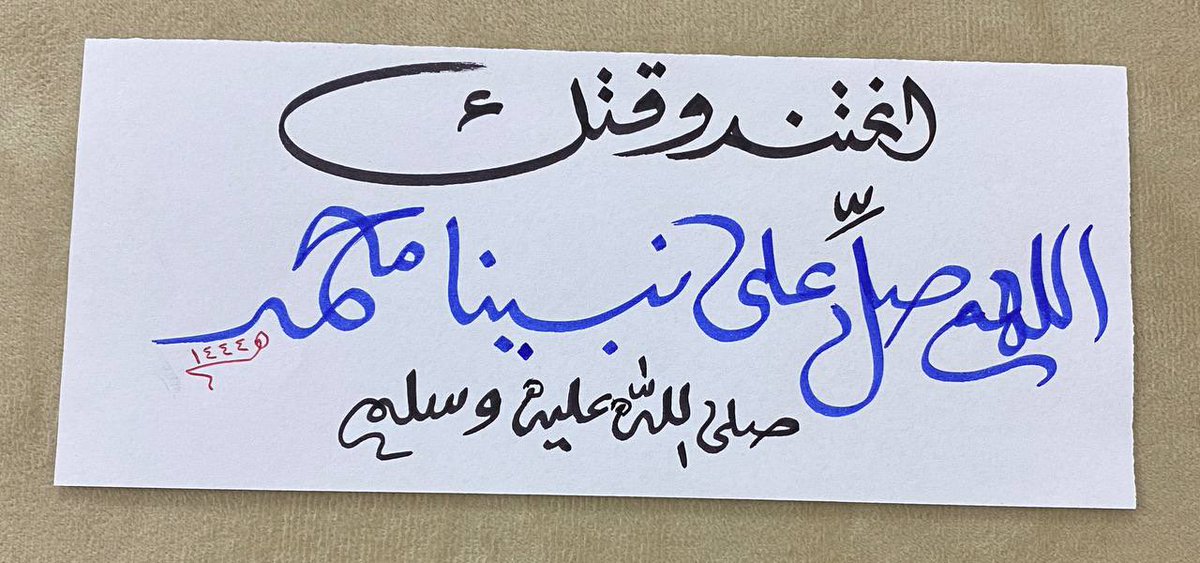 اغتنم وقتك
اللهم صلِّ على نبينا محمد
١٤٤٤هـ
صلى الله عليه وسلم